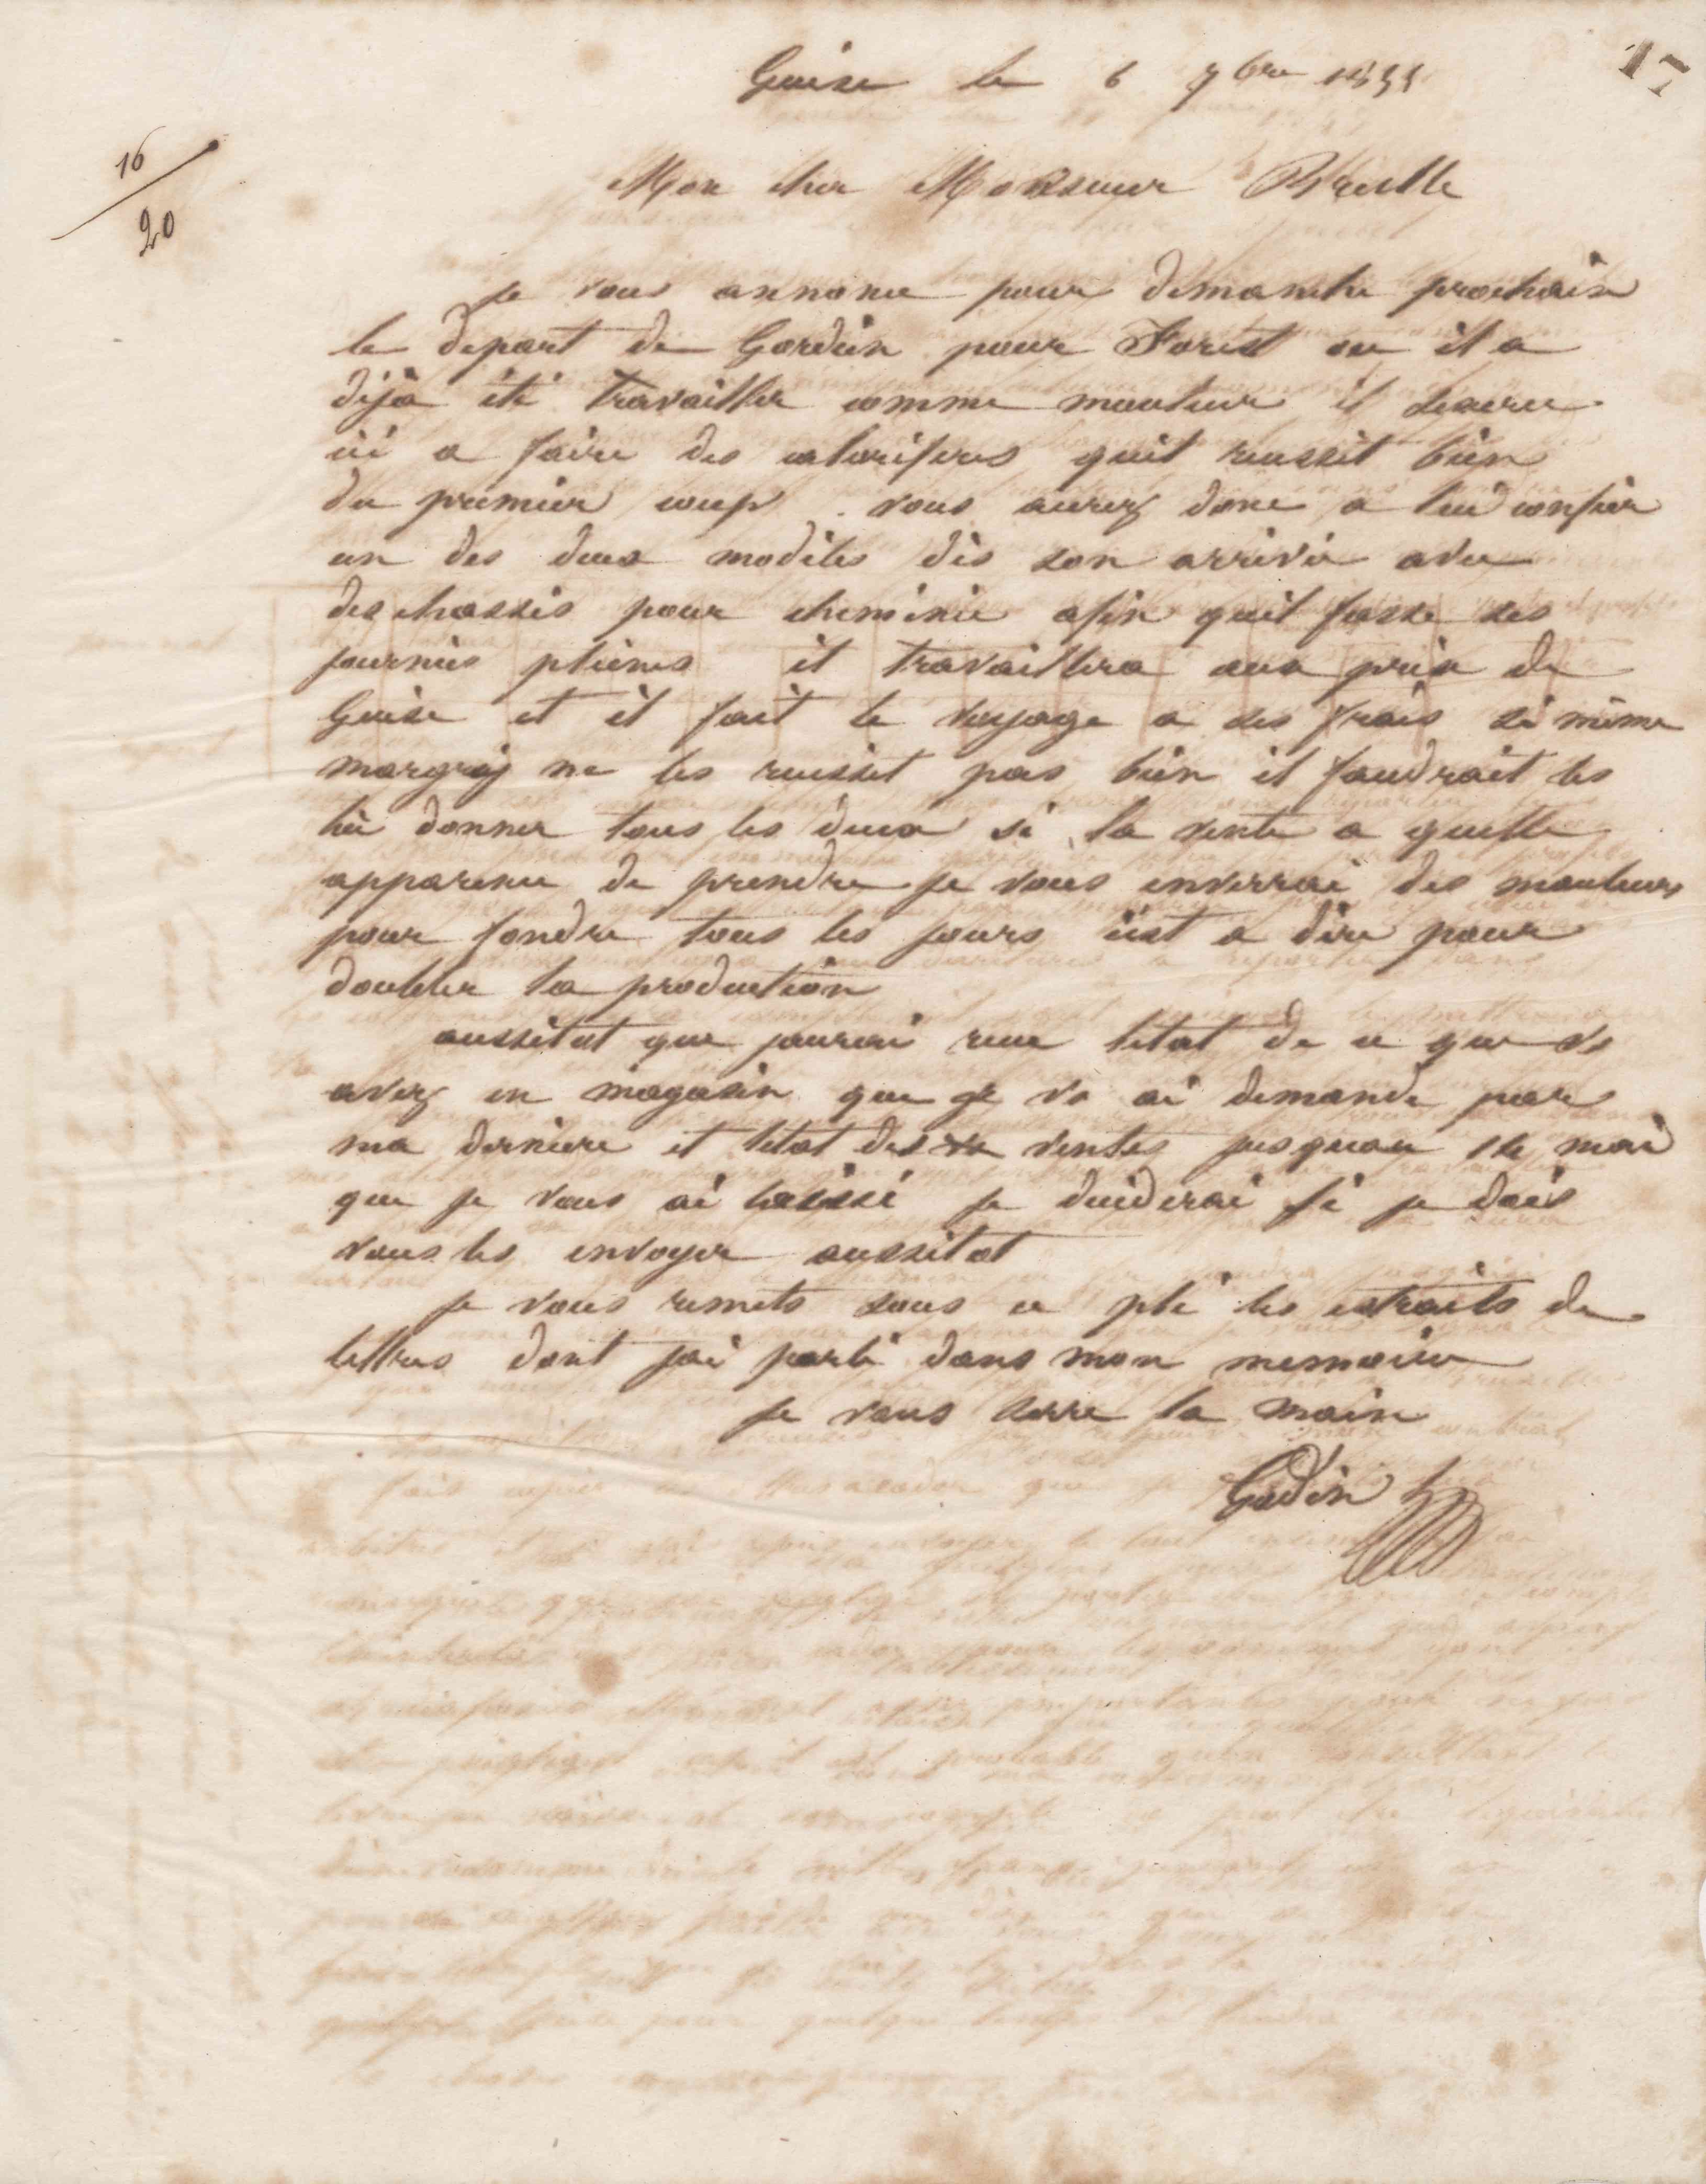 17
Guise le 6 9bre 1855
16
20
Mon cher Monsieur Brullé
je vous annonce pour dimanche prochain
le depart de Gordien pour Forest ou il a
déja été travailler comme mouleur il
ici a faire des caloriferes quil reussit bien
du premier coup . vous aurez donc a lui confier
un des deux modèles dès son arrivée avec
des chassis pour cheminée afin quil fasse ses
journées pleines il travaillera aux prix de
Guise et il fait le voyage a ses frais si même
ne les reussit pas bien il faudrait les
lui donner tous les deux si la vente a quelle
apparence de prendre je vous enverrai des mouleurs
pour fondre tous les jours cest a dire pour
doubler la production
aussitot que jaurai recu letat de ce que vs
avez en magasin que je vs ai demandé par
ma derniere et letat des ventes jusquau mai
que je vous ai laissé je deciderai si je dois
vous les envoyer aussitot
je vous remets sous ce pli les extraits de
lettres dont jai parlé dans mon memoire
je vous serre la main
Godin